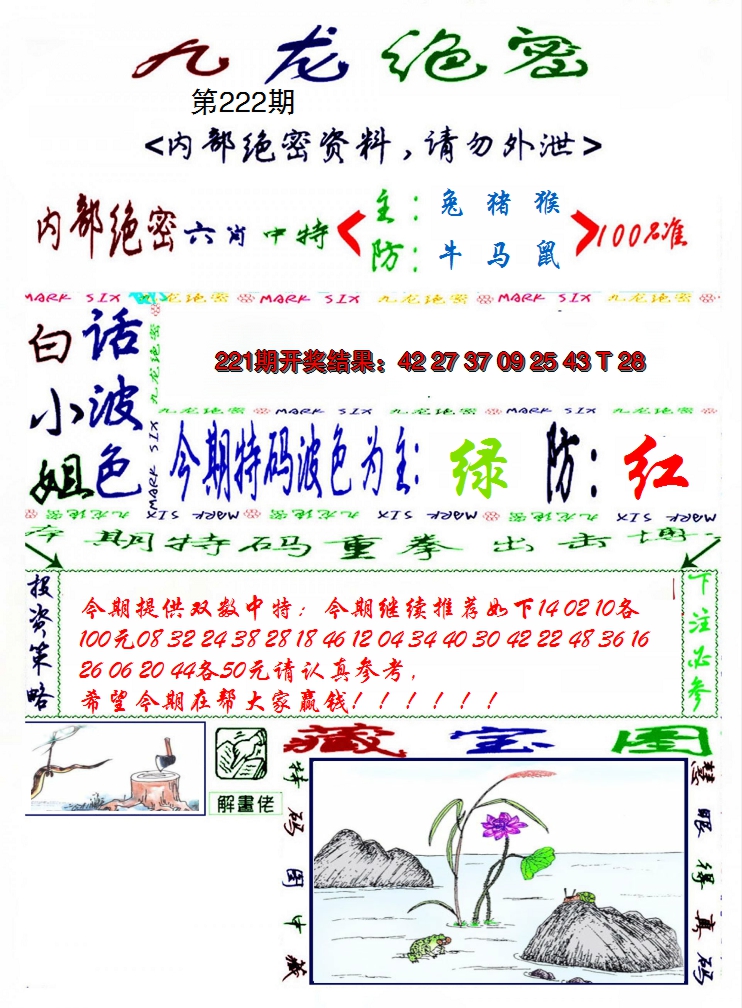 九龙绝密
第222期
<内部绝密资料,请勿外泄>
内部绝密六肖中特
主:兔 猪 猴
防:牛 马 鼠
100%准
MARK SIX 九龙绝密 MARK SIX 九龙绝密 MARK SIX 九龙绝密
白小姐
话波色
九龙绝密
MARK SIX
221期开奖结果:42 27 37 09 25 43 T 28
九龙绝密 MARK SIX 九龙绝密 MARK SIX 九龙绝密
今期特码波色为主:绿 防:红
MARK SIX 九龙绝密 MARK SIX 九龙绝密 MARK SIX 九龙绝密 MARK SIX
本期特码重拳出击博
投资策略
今期提供双数中特;今期继续推荐如下14 02 10各
100元08 32 24 38 28 18 46 12 04 34 40 30 42 22 48 36 16
26 06 20 44各50元请认真参考,
希望今期在帮大家赢钱!!!!!!
下注必参
解畫佬
藏宝图
特码图中藏
慧眼得真码